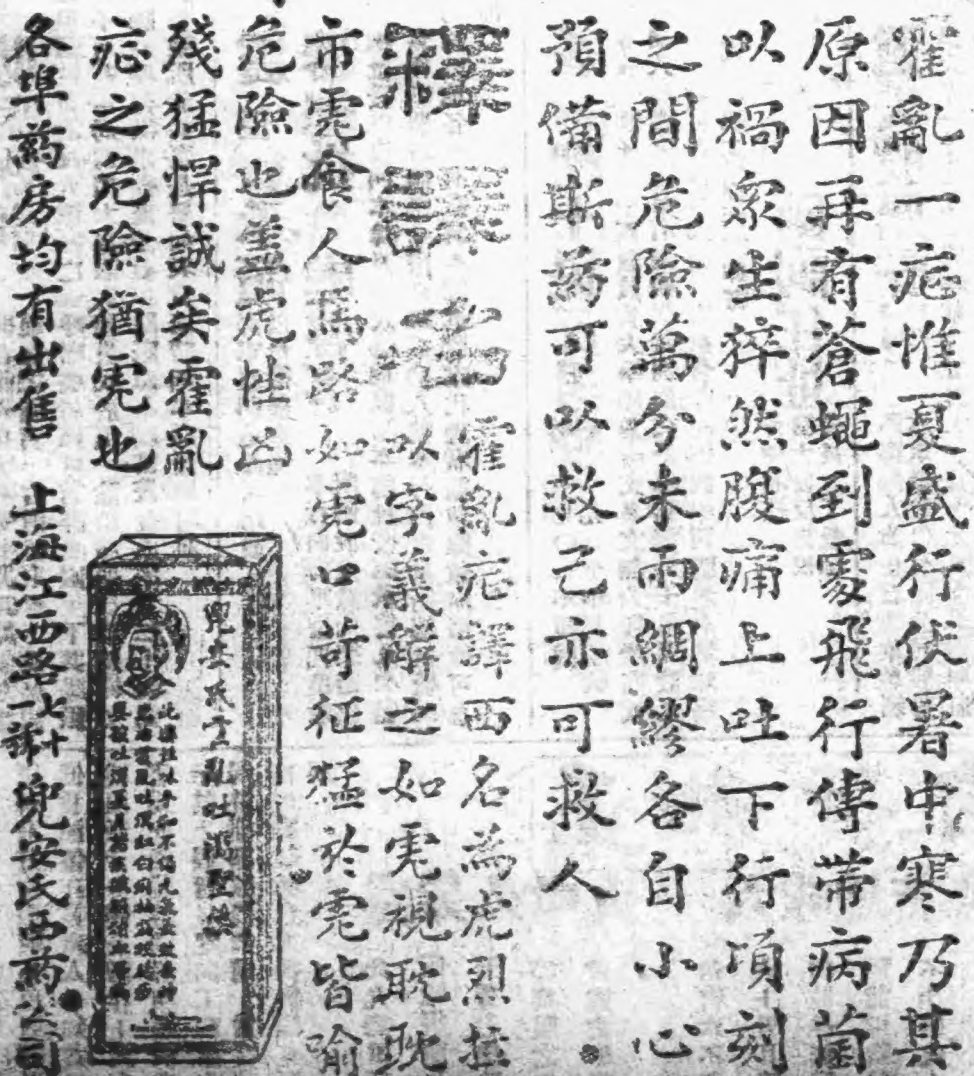 霍亂一症惟夏盛行伏暑中寒乃其
原因再有蒼蠅到處飛行傳帶病菌
以禍衆生猝然腹痛上吐下行頃刻
之間危險萬分未雨綢繆各自小心
預備斯葯可以救己亦可救人
釋譯名
霍亂症譯西名為虎烈拉
以字義解之如虎視耽耽
市虎食人馬路如虎口苛征猛於虎皆喻
危險也盖虎性凶
殘猛悍誠矣霍亂
症之危險猶虎也
各埠葯房均有出售 上海江西路七十一號兜安氏西葯公司
兜安氏霍亂吐瀉聖藥